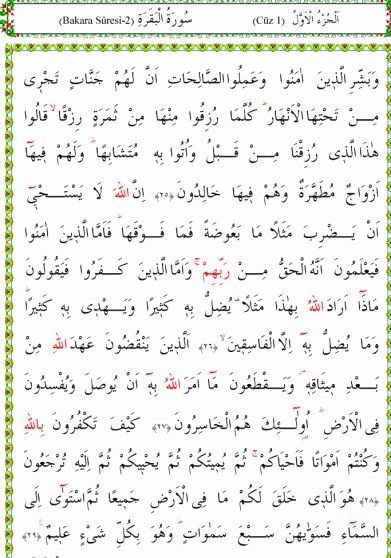 (Bakara Sûresi-2) سُورَةُ الْبَقَرَةِ (Cüz 1) اَلْجُزْءُ الْاَوَّلُ
وَبَشِّرِ الَّذٖينَ اٰمَنُوا وَعَمِلُوا الصَّالِحَاتِ اَنَّ لَهُمْ جَنَّاتٍ تَجْرٖى
مِنْ تَحْتِهَا الْاَنْهَارُؕ كُلَّمَا رُزِقُوا مِنْهَا مِنْ ثَمَرَةٍ رِزْقًاۙ قَالُوا
هٰذَا الَّذٖى رُزِقْنَا مِنْ قَبْلُ وَاُتُوا بِهٖ مُتَشَابِهًاؕ وَلَهُمْ فٖيهَٓا
اَزْوَاجٌ مُطَهَّرَةٌ وَهُمْ فٖيهَا خَالِدُونَ ﴿٢٥﴾ اِنَّ اللّٰهَ لَا يَسْتَحْيٖٓ
اَنْ يَضْرِبَ مَثَلًا مَا بَعُوضَةً فَمَا فَوْقَهَاؕ فَاَمَّا الَّذٖينَ اٰمَنُوا
فَيَعْلَمُونَ اَنَّهُ الْحَقُّ مِنْ رَبِّهِمْۚ وَاَمَّا الَّذٖينَ كَفَرُوا فَيَقُولُونَ
مَاذَٓا اَرَادَ اللّٰهُ بِهٰذَا مَثَلًاۘ يُضِلُّ بِهٖ كَثٖيرًا وَيَهْدٖى بِهٖ كَثٖيرًاؕ
وَمَا يُضِلُّ بِهٖٓ اِلَّا الْفَاسِقٖينَۙ ﴿٢٦﴾ اَلَّذٖينَ يَنْقُضُونَ عَهْدَ اللّٰهِ مِنْ
بَعْدِ مٖيثَاقِهٖࣕ وَيَقْطَعُونَ مَٓا اَمَرَ اللّٰهُ بِهٖٓ اَنْ يُوصَلَ وَيُفْسِدُونَ
فِى الْاَرْضِؕ اُو۬لٰٓئِكَ هُمُ الْخَاسِرُونَ ﴿٢٧﴾ كَيْفَ تَكْفُرُونَ بِاللّٰهِ
وَكُنْتُمْ اَمْوَاتًا فَاَحْيَاكُمْۚ ثُمَّ يُمٖيتُكُمْ ثُمَّ يُحْيٖيكُمْ ثُمَّ اِلَيْهِ تُرْجَعُونَ
﴿٢٨﴾ هُوَ الَّذٖى خَلَقَ لَكُمْ مَا فِى الْاَرْضِ جَمٖيعًا ثُمَّ اسْتَوٰٓى اِلَى
السَّمَٓاءِ فَسَوّٰيهُنَّ سَبْعَ سَمٰوَاتٍؕ وَهُوَ بِكُلِّ شَىْءٍ عَلٖيمٌࣖ ﴿٢٩﴾